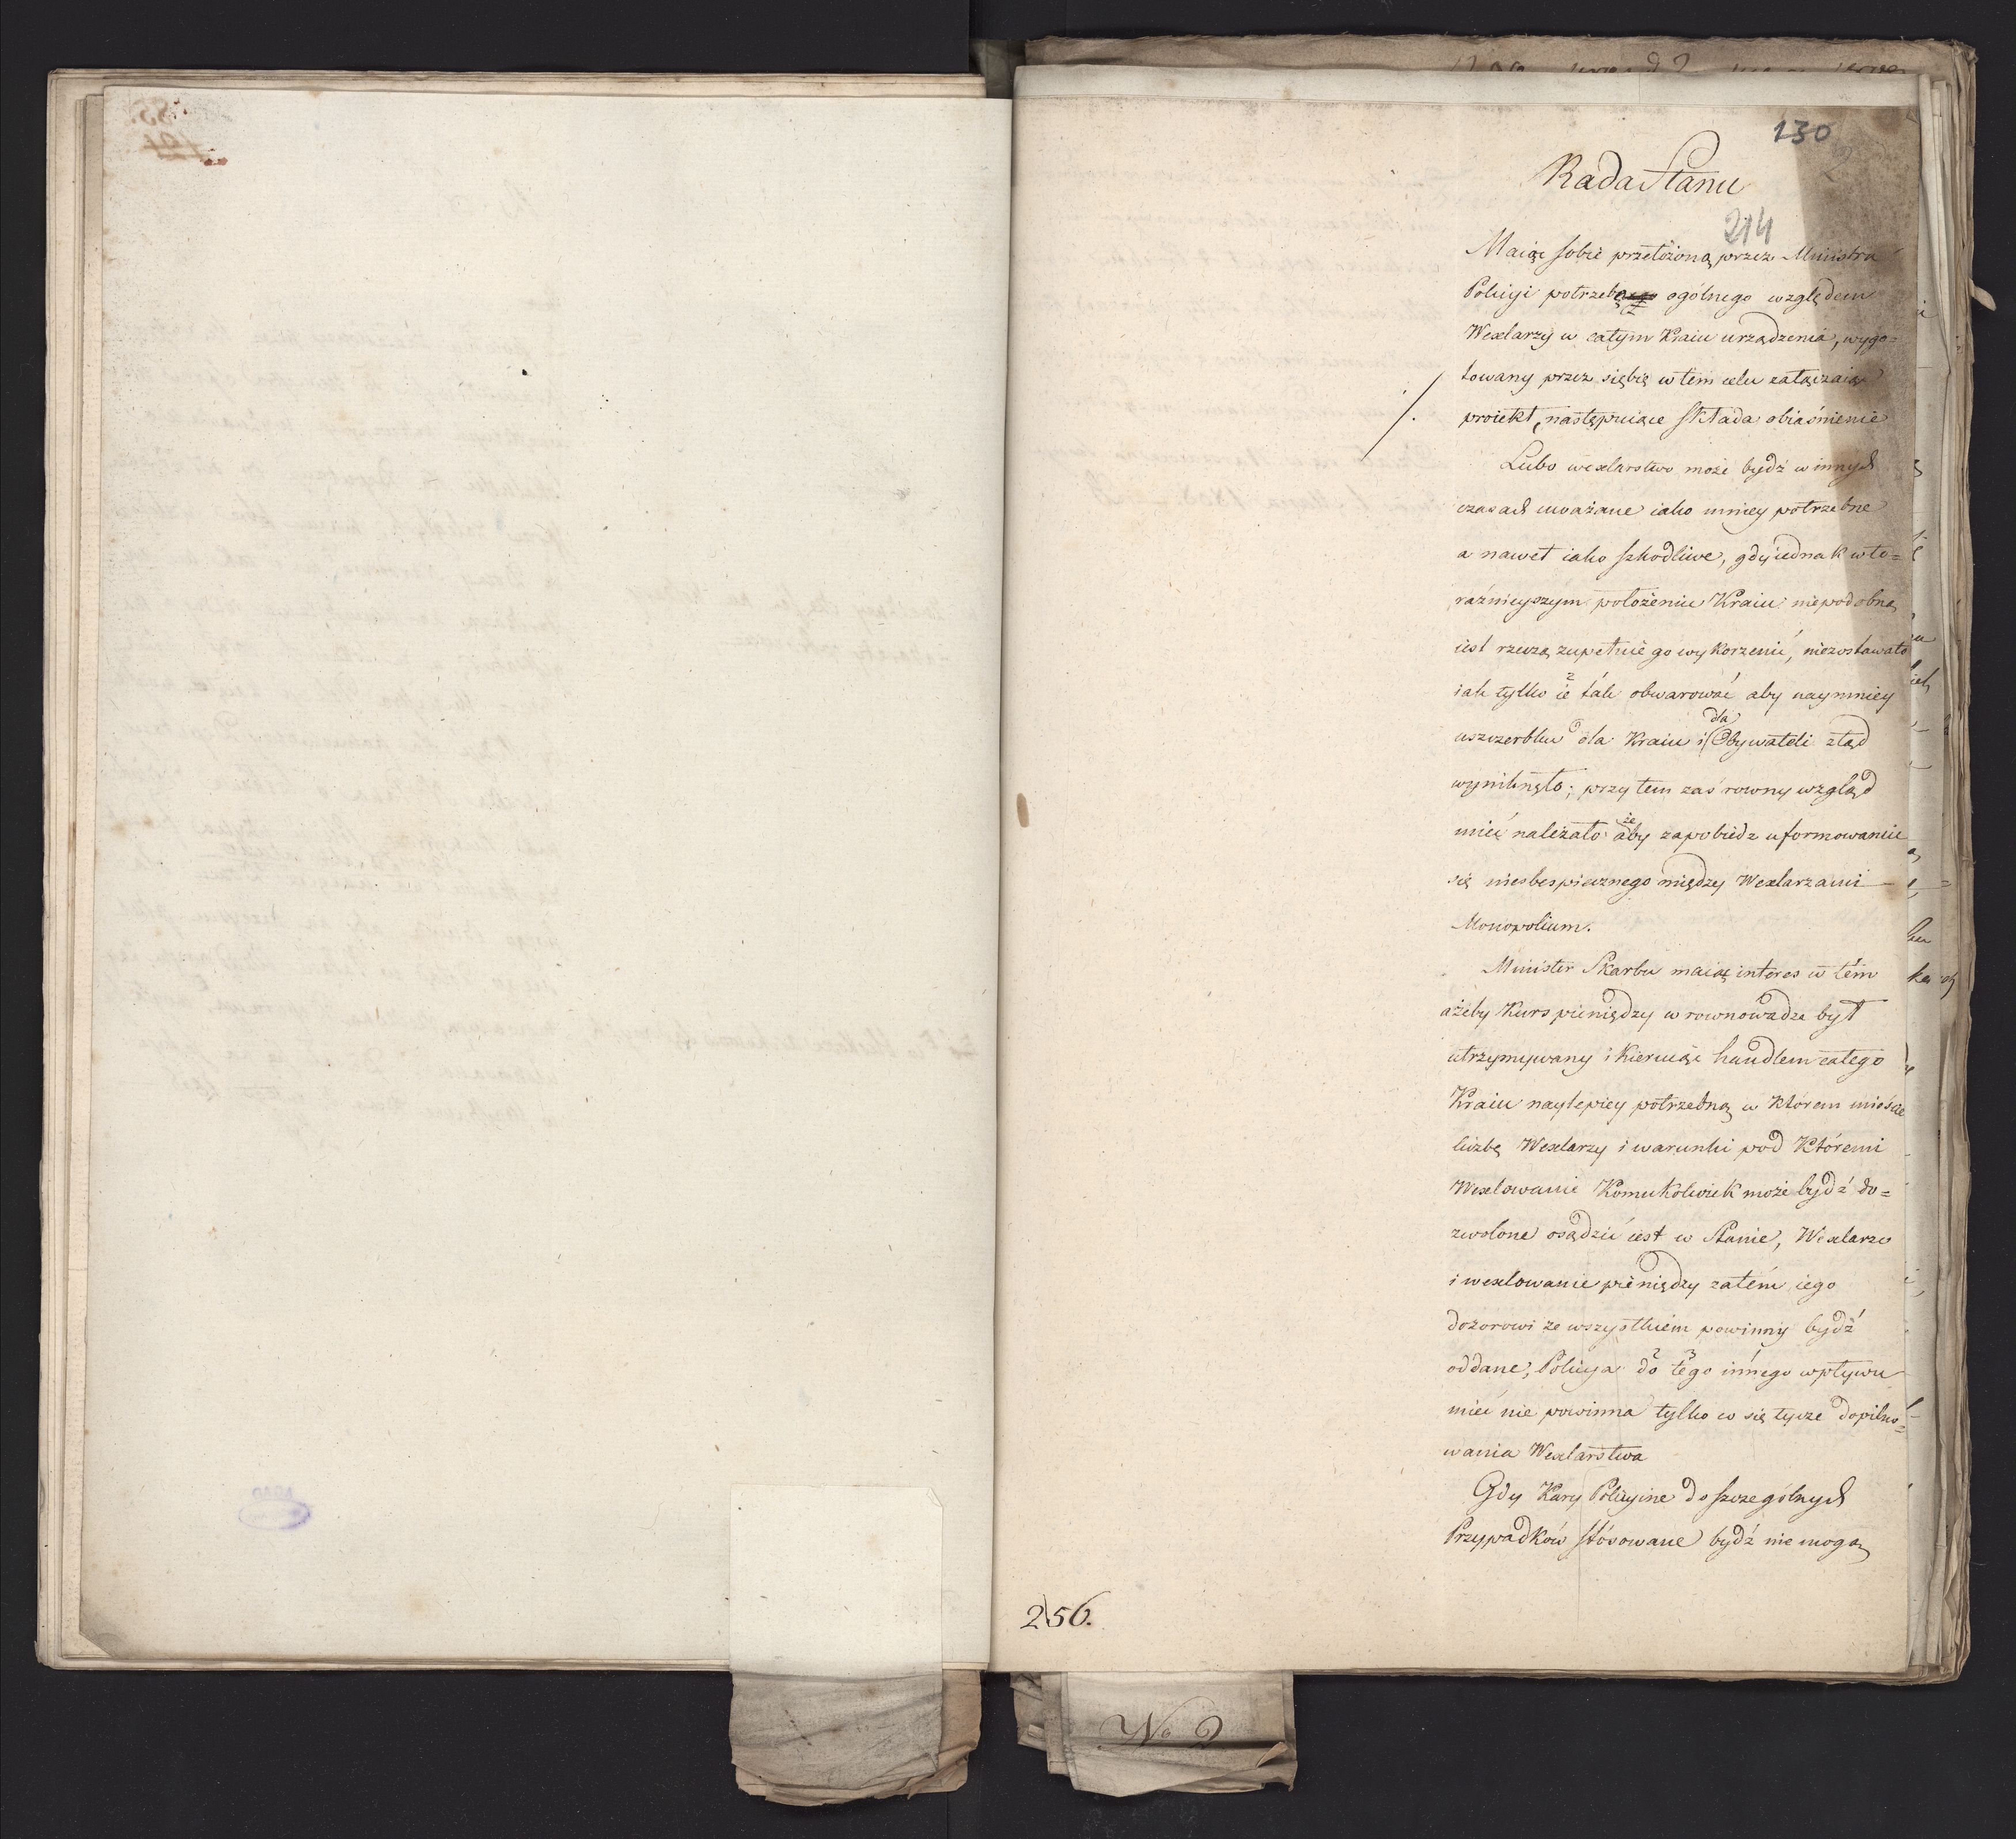 130
Rada Stanu
214
Maiąc sobie przełożoną przez Ministra
Policyi potrzebę ogólnego względem
Wexlarzy w całym Kraiu urządzenia, wygo=
towany przez siebie w tem celu załączaiąc
proiekt, następuiące składa obiaśnienie
Lubo wexlarstwo może bydź w innych
czasach uważane iako mniey potrzebne
a nawet iako szkodliwe, gdy iednak w to=
raźnieyszym położeniu Kraiu niepodobną
iest rzeczą zupełnie go wykorzenić, niezostawało
iak tylko ie tak obwarować aby naymniey
uszczerbku dla Kraiu i dla Obywateli ztąd
wyniknęło; przy tem zaś rowny wzgląd
mieć należało aby zapobiedz uformowaniu
się niesbespiecznego między Wexlarzami
Monopolium.
Minister Skarbu maiąc interes w tém
ażeby Kurs pieniędzy w rownowadze był
utrzymywany i kieruiąc handlem całego
Kraiu naylepiey potrzebną w którem mieście
liczbę Wexlarzy i warunki pod któremi
Wexlowanie komukolwiek może bydź do=
zwolone osądzić iest w stanie, Wexlarze
i wexlowanie pieniędzy zatém iego
dozorowi ze wszystkiem powinny bydź
oddane, Policya do tego innego wpływu
mieć nie powinna tylko co się tycze dopilno=
wania Wexlarstwa
Gdy Kary Policyine do szczególnych
Przypadków stósowane bydź nie mogą
256.
No 2